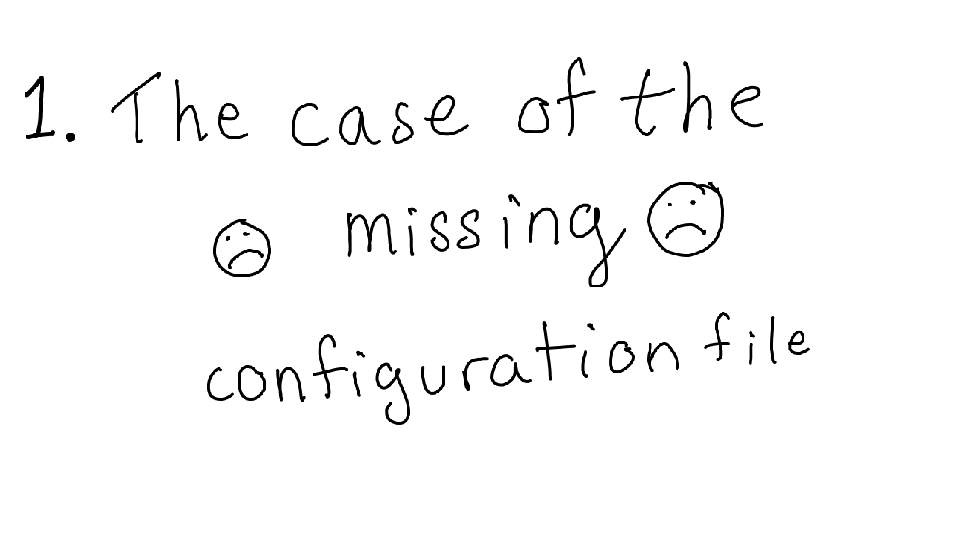 1. The case of the
missing
configuration file